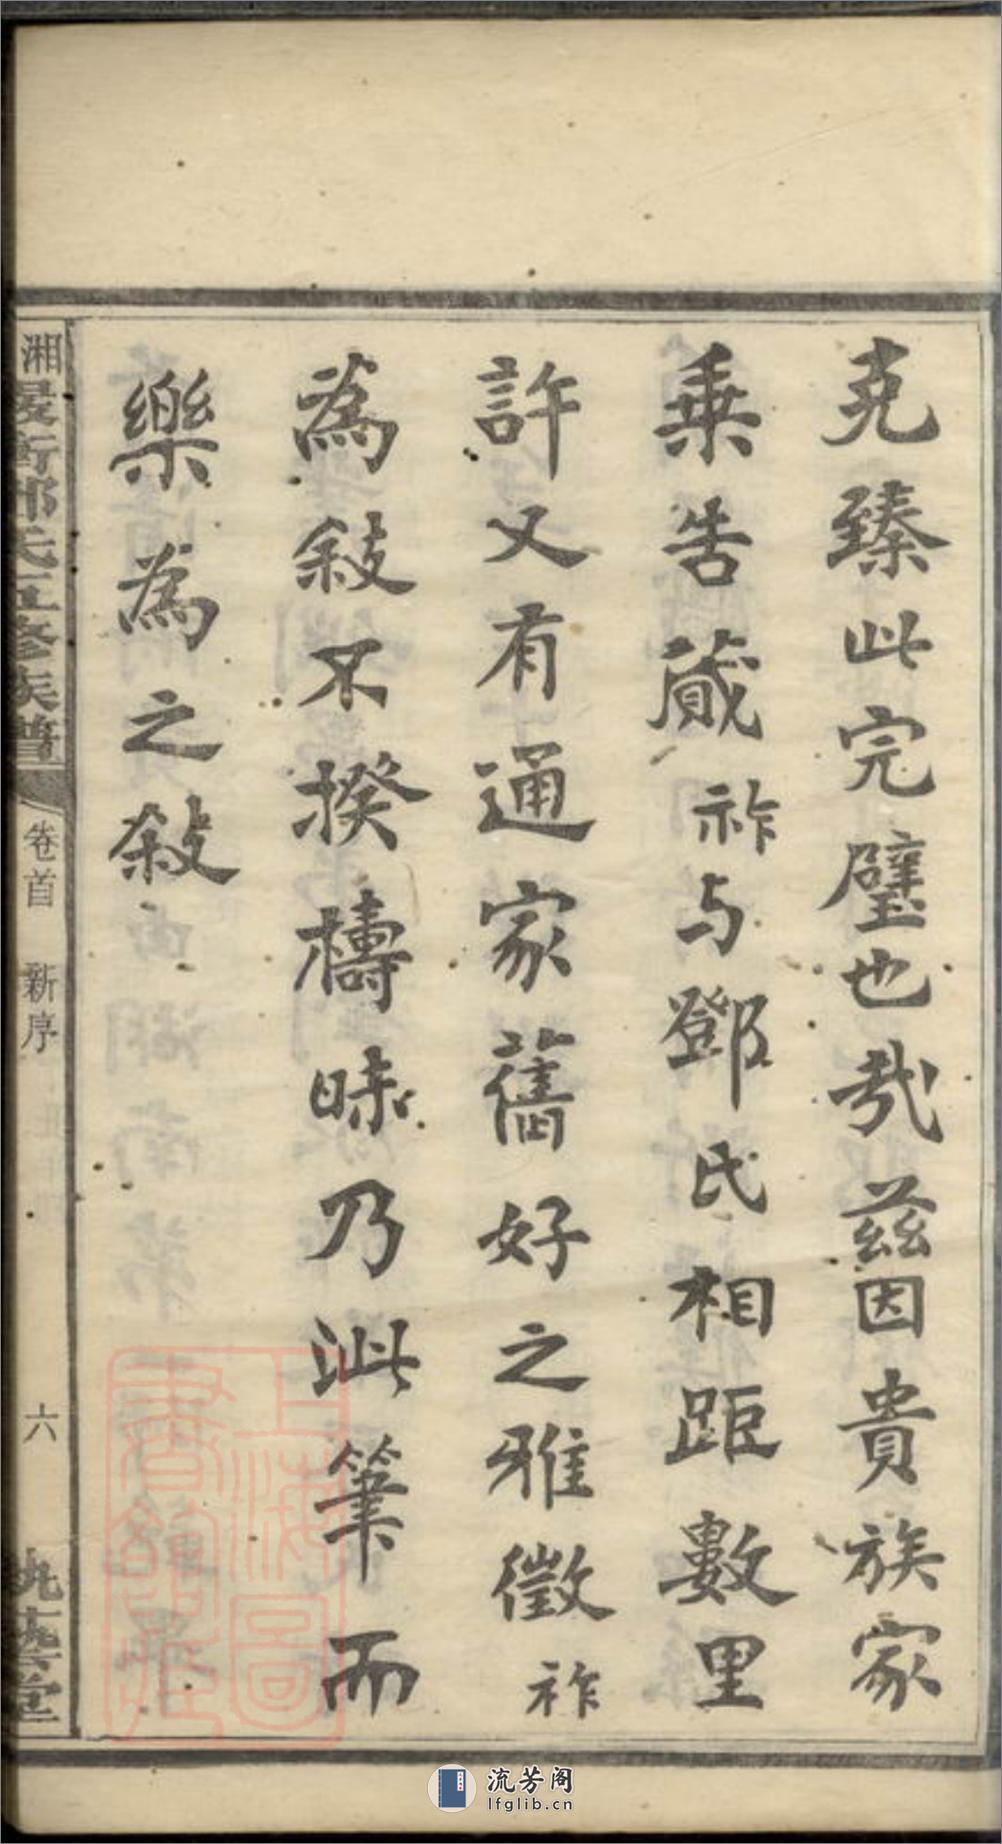 克臻此完璧也哉茲因貴族家
乗告蕆祚与鄧氏相距數里
許又有通家舊好之雅徵祚
為敍不揆檮昧乃泚筆而
樂為之敍
氏五修族譜
卷首 新序
六
上海圖書館藏
流芳阁
lfglib.cn